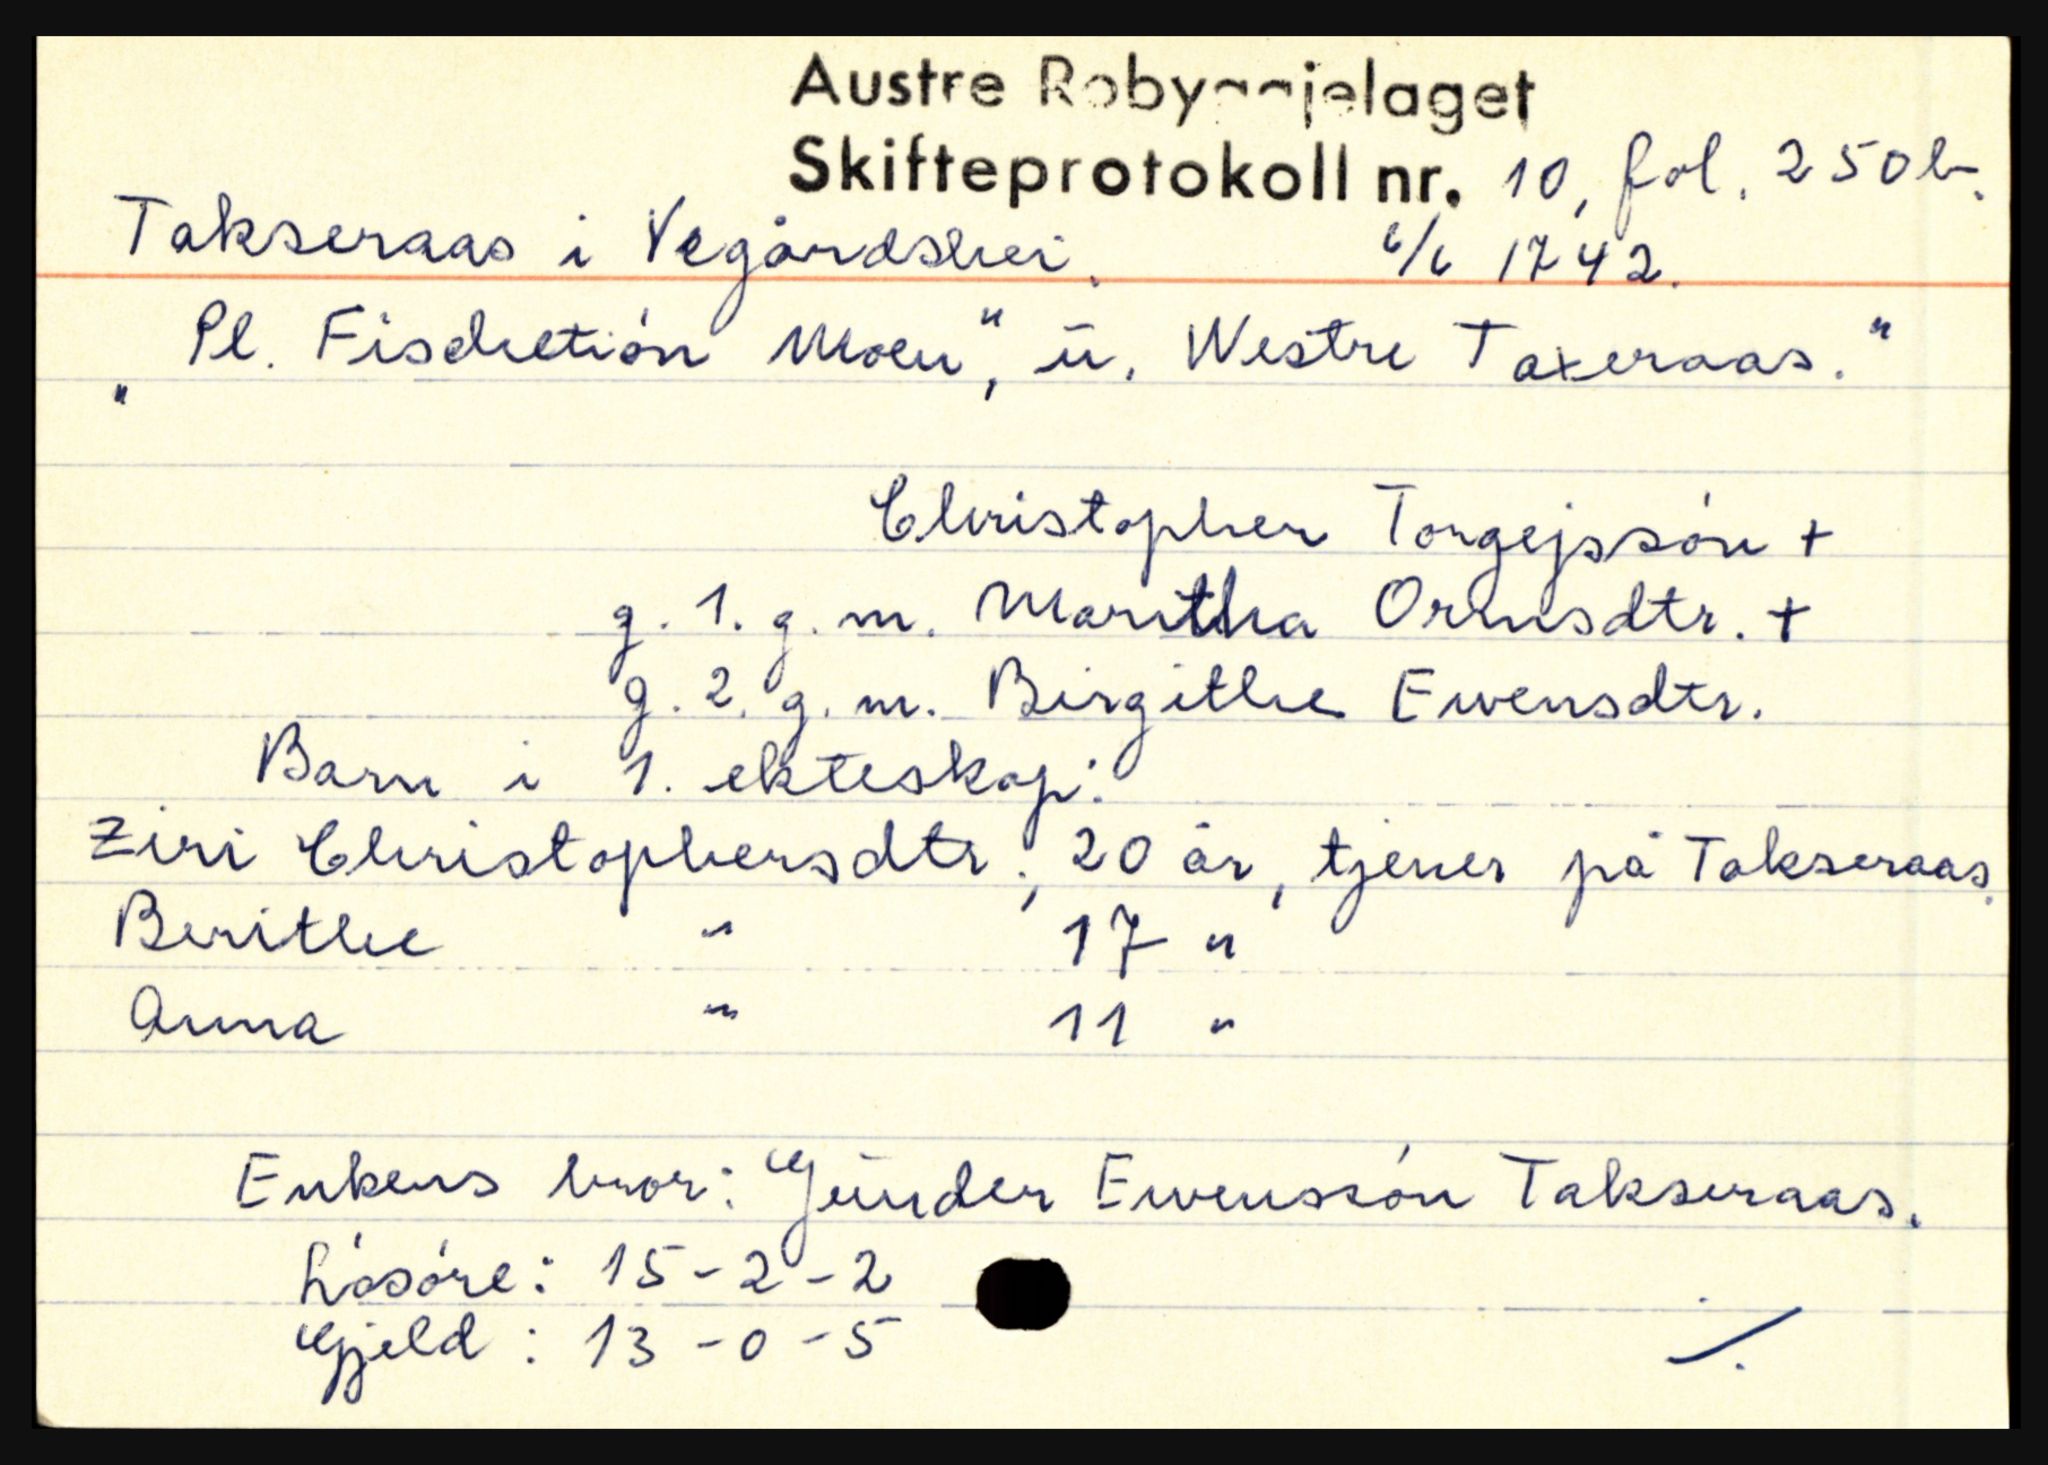 Austre Robyggjelaget
Skifteprotokoll nr. 10, fol. 250b.
Takseraas i Vegårdshei. 6/6 1742.
"Pl. Fischetión Moen", ū. Westre Taxeraas."
Christopher Torgejssón +
g. 1. g. m. Maritha Ormsdtr. +
g. 2. g. m. Birgithe Ewensdtr.
Barn i 1. ekteskap:
Ziri Christophersdtr., 20 år, tjener på Takseraas.
Berithe " 17 "
Anna " 11 "
Enkens bror: Gūnder Ewenssón Takseraas.
Lósóre: 15-2-2
Gjeld: 13-0-5